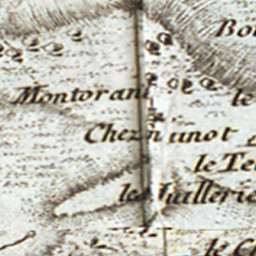 Bo
Montorant
le
Chez nunot
le Te
les Tuillerie
le C